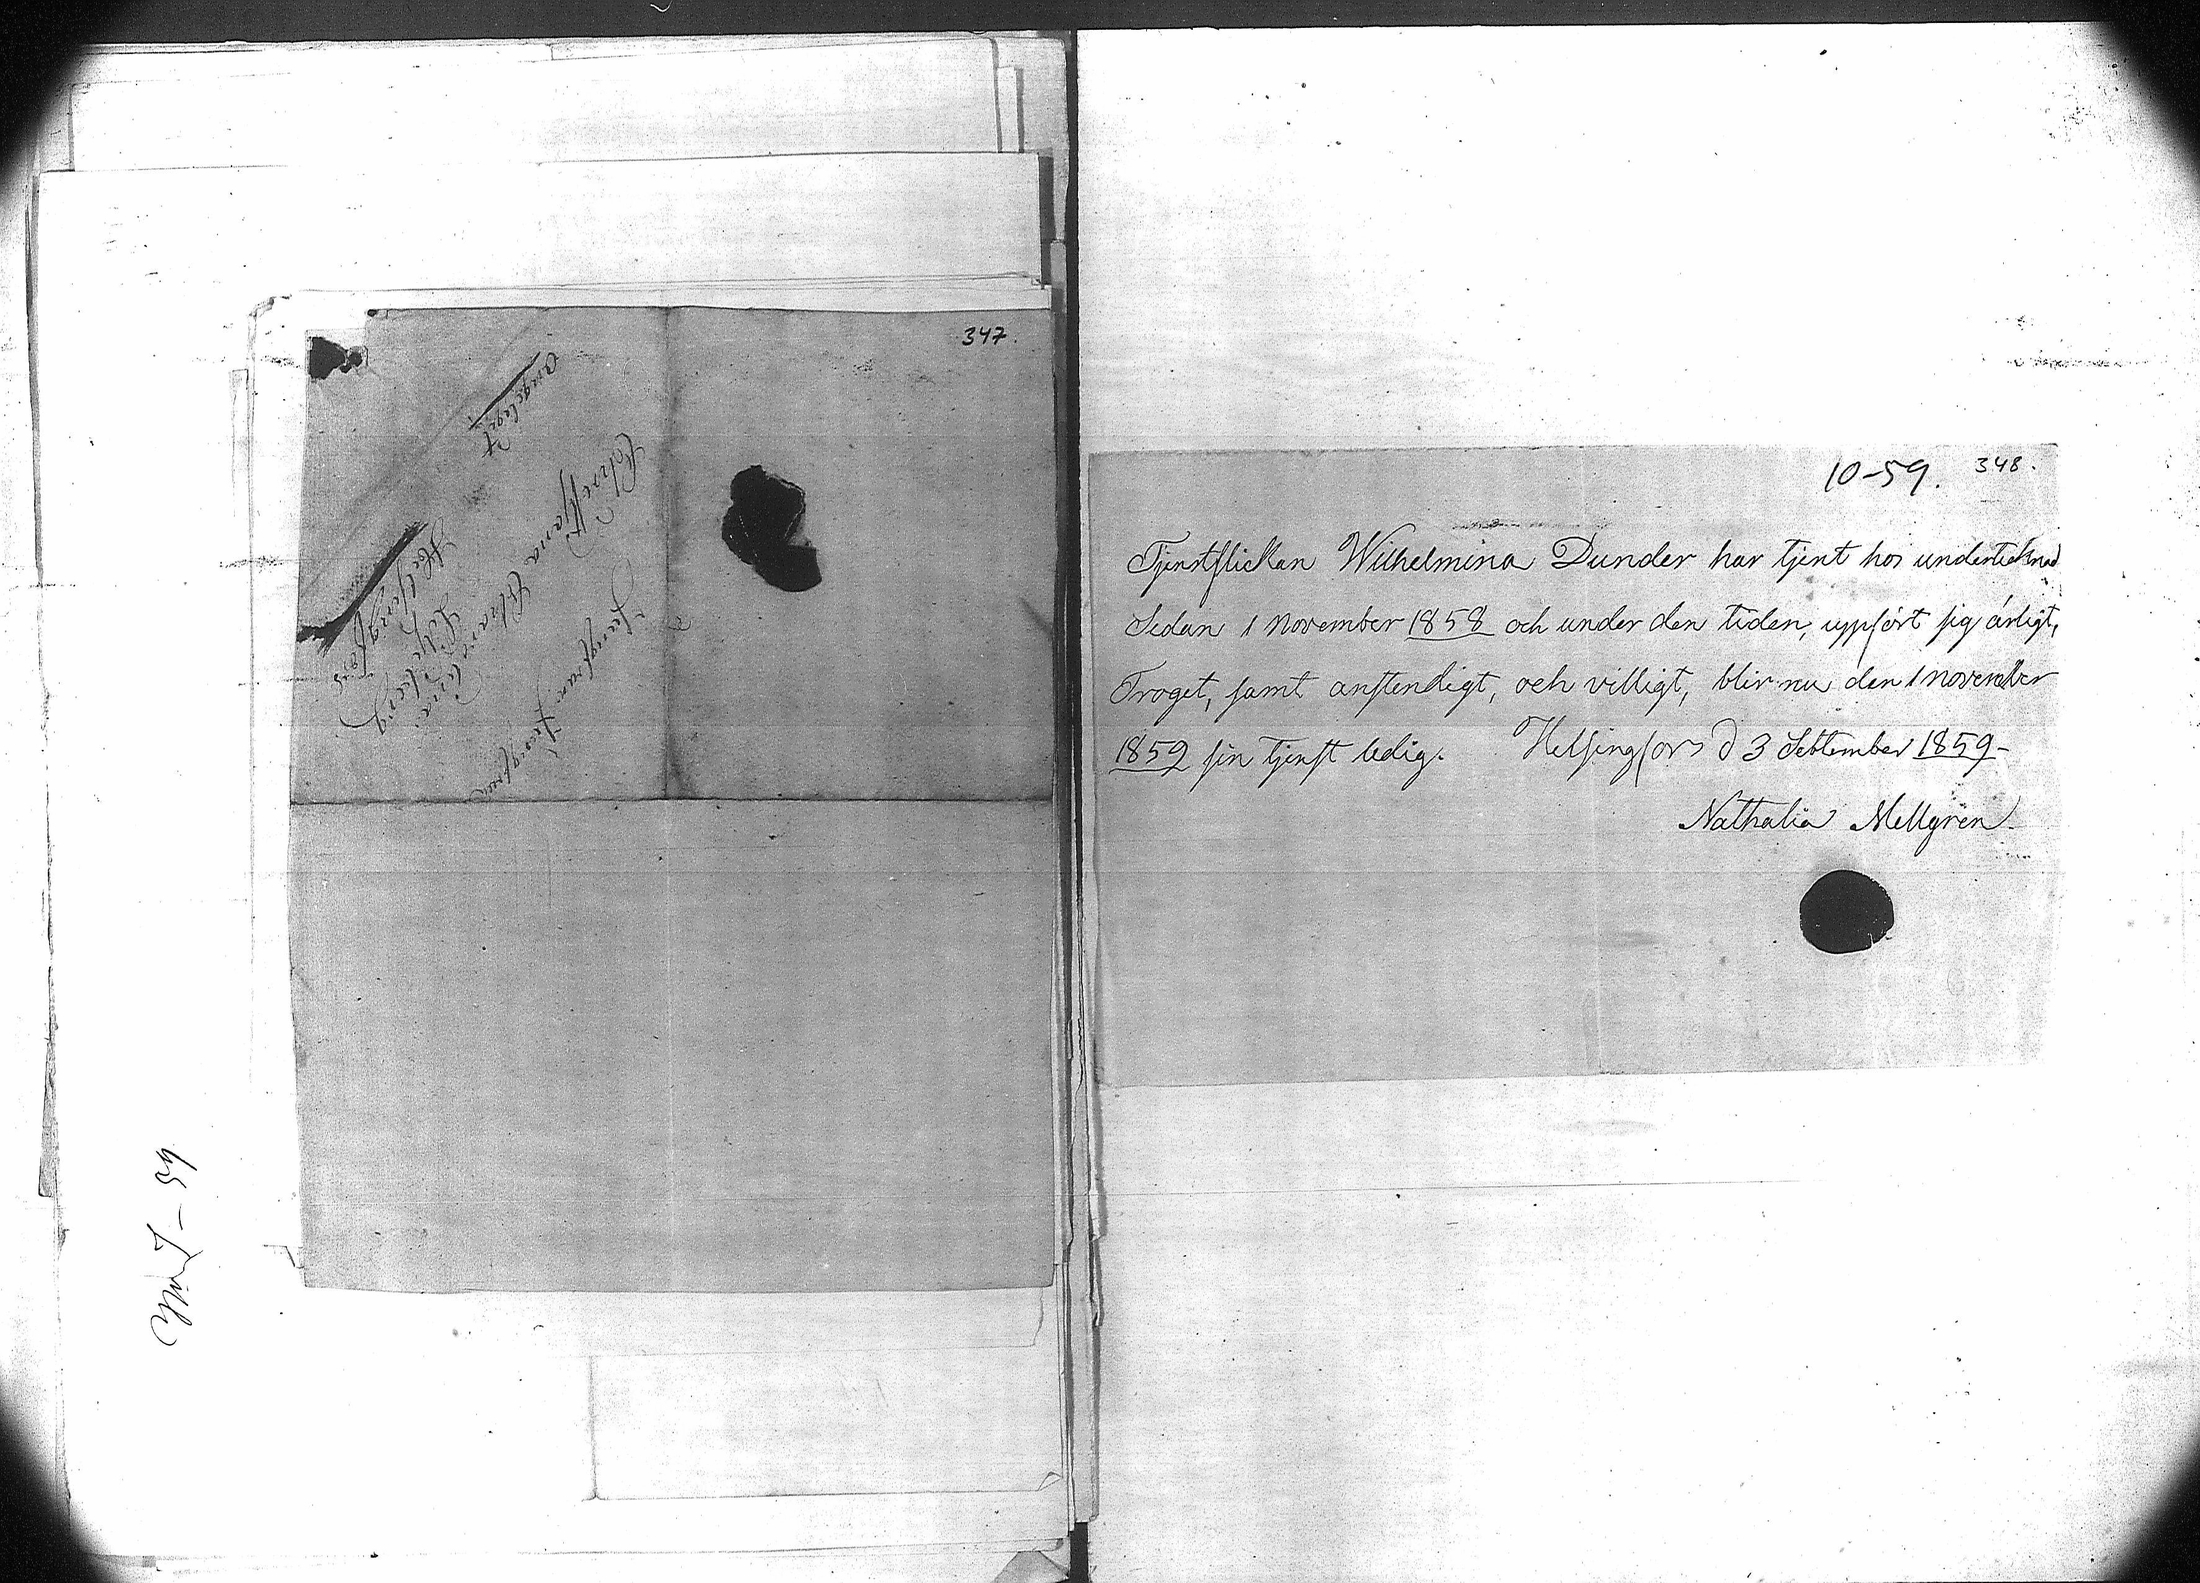 347.
Jungfrun Jungfrun
Christjana
Helsingfors
angelegit
59
10-59. 348.
Tjenstflickan Wilhelmina Dunder har tjent hos undertecknad
Sedan 1 November 1858 och under den tiden, uppfört sig ärligt,
Troget, samt anstendigt, och villigt, blir nu den 1 november
1859 sin tjenst ledig. Helsingfors d 3 September 1859-
Nathalia Mellgren.